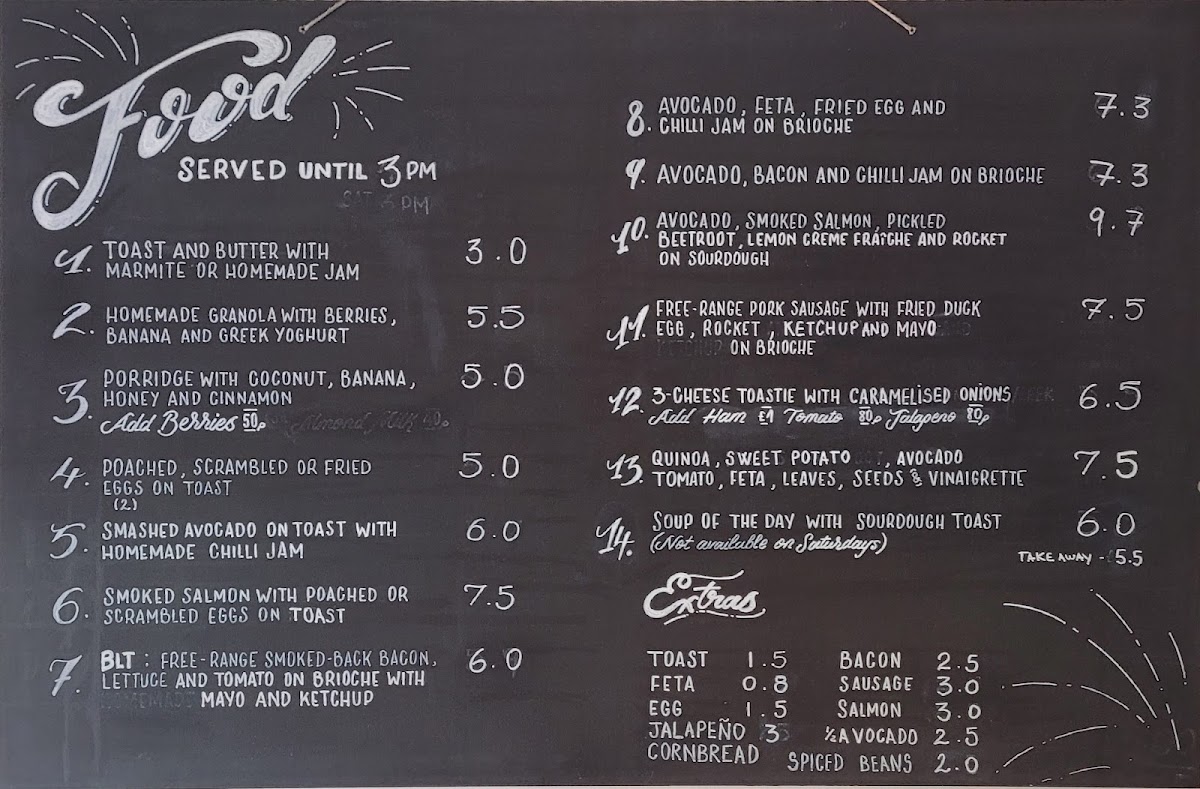 Food
SERVED UNTIL 3 PM
SAT 3 PM
1. TOAST AND BUTTER WITH 3.0
MARMITE OR HOMEMADE JAM
2. HOMEMADE GRANOLA WITH BERRIES, 5.5
BANANA AND GREEK YOGHURT
3. PORRIDGE WITH COCONUT, BANANA, 5.0
HONEY AND CINNAMON
Add Berries 50p Almond Milk
4. POACHED, SCRAMBLED OR FRIED 5.0
EGGS ON TOAST
(2)
5. SMASHED AVOCADO ON TOAST WITH 6.0
HOMEMADE CHILLI JAM
6. SMOKED SALMON WITH POACHED OR 7.5
SCRAMBLED EGGS ON TOAST
7. BLT : FREE-RANGE SMOKED-BACK BACON, 6.0
LETTUCE AND TOMATO ON BRIOCHE WITH
HOMEMADE MAYO AND KETCHUP
8. AVOCADO, FETA, FRIED EGG AND 7.3
CHILLI JAM ON BRIOCHE
9. AVOCADO, BACON AND CHILLI JAM ON BRIOCHE 7.3
10. AVOCADO, SMOKED SALMON, PICKLED 9.7
BEETROOT, LEMON CREME FRAÎCHE AND ROCKET
ON SOURDOUGH
11. FREE-RANGE PORK SAUSAGE WITH FRIED DUCK 7.5
EGG, ROCKET, KETCHUP AND MAYO
KETCHUP ON BRIOCHE
12. 3-CHEESE TOASTIE WITH CARAMELISED ONIONS 6.5
Add Ham £1 Tomato 80p Jalapeno 80p
13. QUINOA, SWEET POTATO, AVOCADO 7.5
TOMATO, FETA, LEAVES, SEEDS & VINAIGRETTE
14. SOUP OF THE DAY WITH SOURDOUGH TOAST 6.0
(Not available on Saturdays)
TAKE AWAY - 5.5
Extras
TOAST 1.5 BACON 2.5
FETA 0.8 SAUSAGE 3.0
EGG 1.5 SALMON 3.0
JALAPEÑO 3 ½ AVOCADO 2.5
CORNBREAD SPICED BEANS 2.0